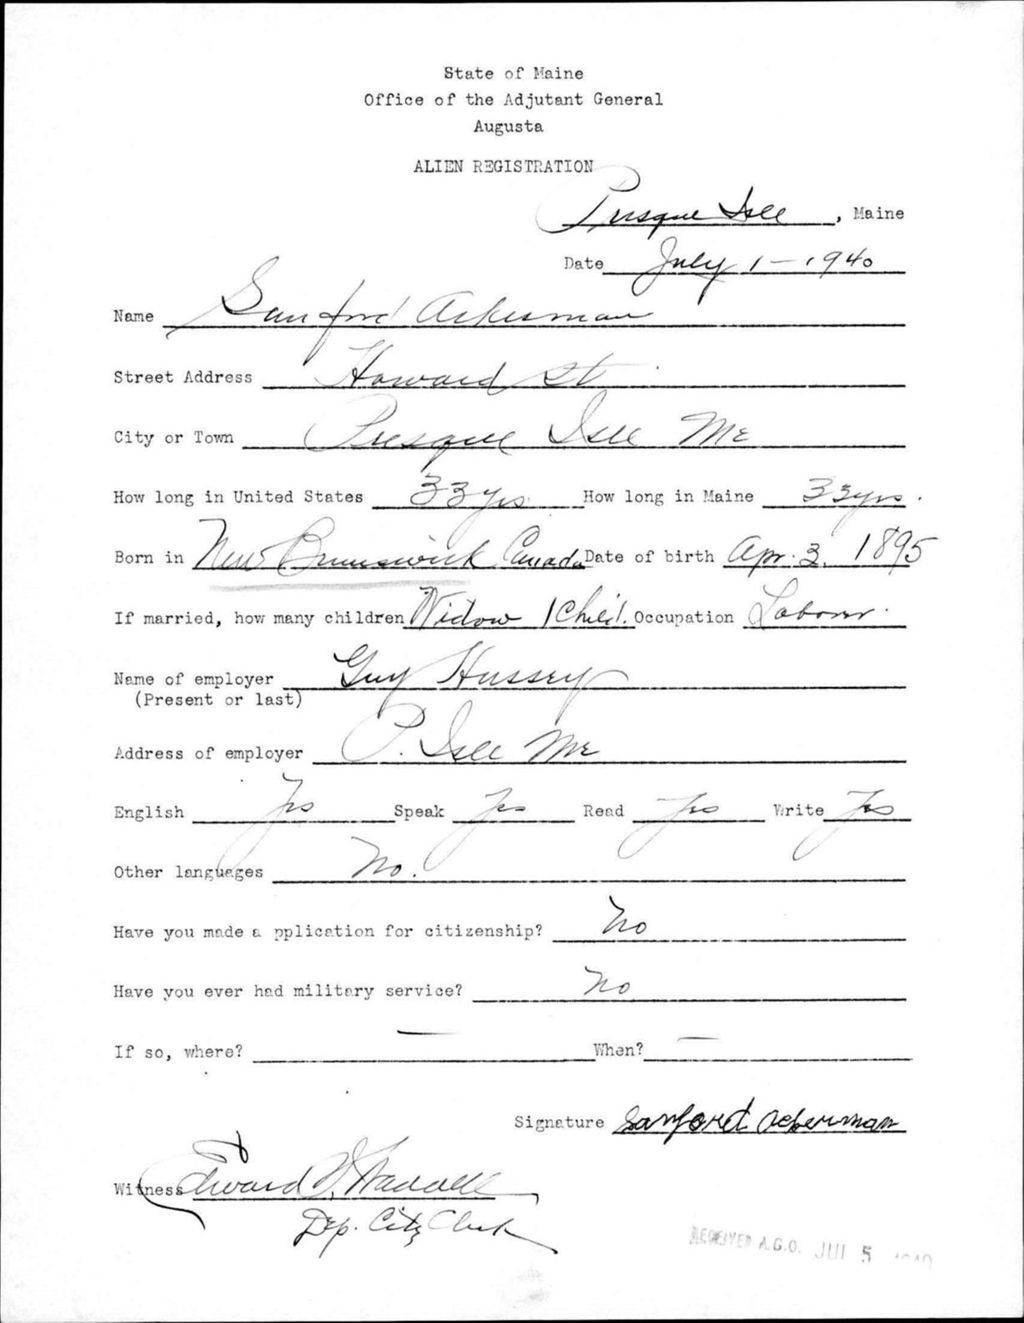 State of Maine
Office of the Adjutant General
Augusta
ALIEN REGISTRATION
Presque Isle, Maine
Date July 1 - 1940
Name Sanford Ackerman
Street Address Howard St
City or Town Presque Isle Me
How long in United States 33 yrs How long in Maine 33 yrs.
Born in New Brunswick Canada Date of birth Apr. 3, 1895
If married, how many children Widow 1 Child. Occupation Laborer.
Name of employer Guy Hussey
(Present or last)
Address of employer P. Isle Me
English Yes Speak Yes Read Yes Write Yes
Other languages No.
Have you made a pplication for citizenship? No
Have you ever had military service? No
If so, where? — When? —
Signature Sanford Ackerman
Witness Edward
Dep. City Clerk
RECEIVED A.G.O. JUL 5 1940